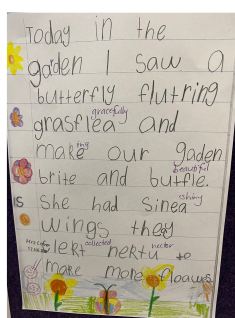 Today in the
garden I saw a
butterfly flutring
gracefully
grasflea and
make our gaden
beautiful
brite and butfle.
shiny
She had sinea
wings they
collected nectar
lekt nektu to
make more floawus